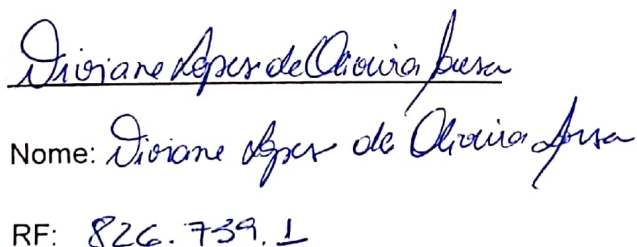 Viviane Lopes de Oliveira Sousa
Nome: Viviane Lopes de Oliveira Sousa
RF: 826.739.1